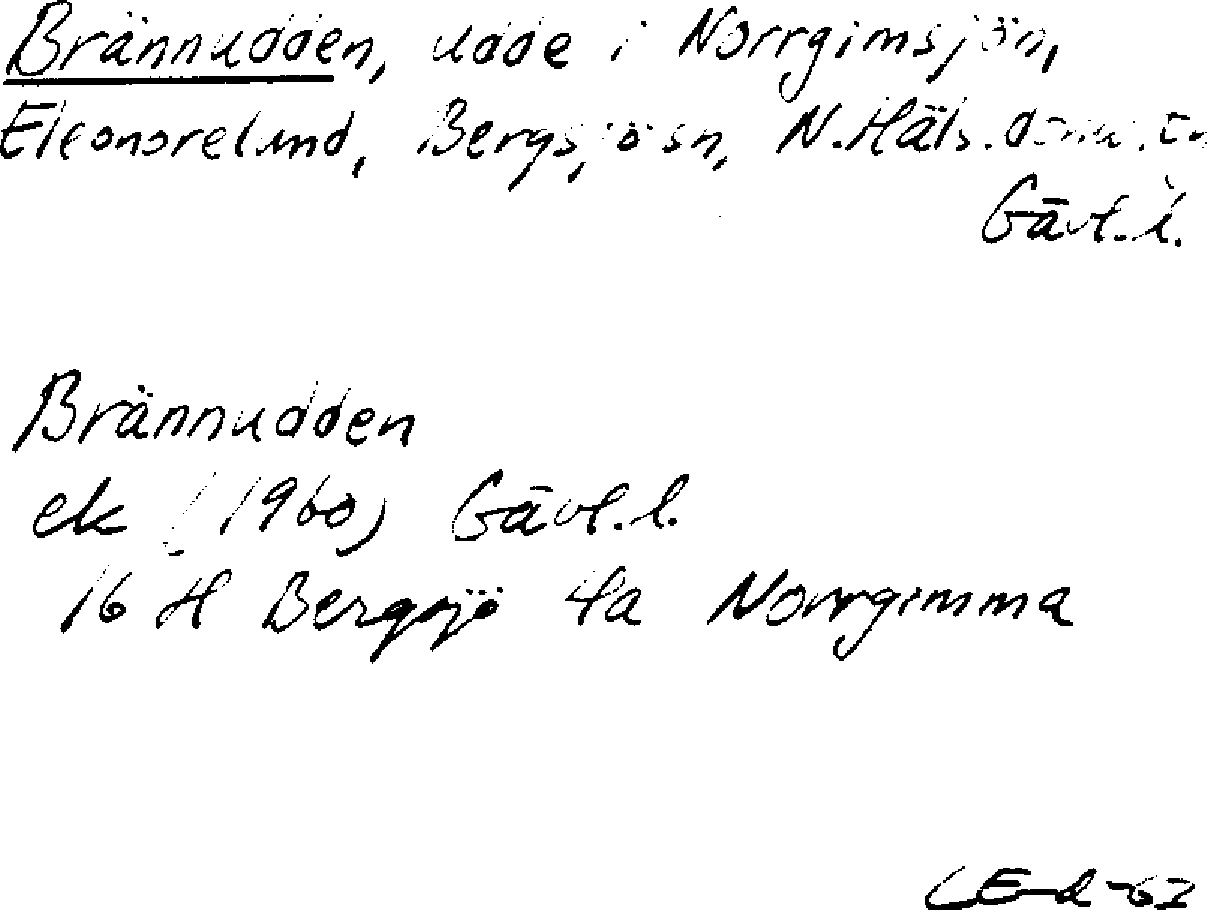 Brännudden, udde i Norrgimsjön,
Eleonorelund, Bergsjö sn, N. Häls.
Gävl. l.
Brännudden
ek (1960) Gävl. l.
16 H Bergsjö 4a Norrgimma